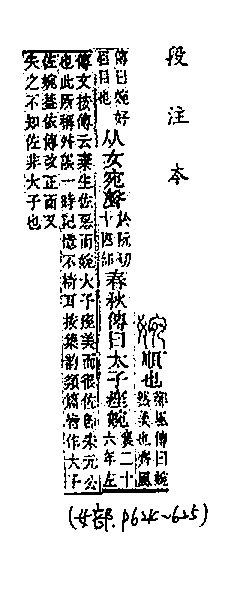 段注本
婉順也鄭風傳曰婉
然美也齊風
傳曰婉好
眉目也
从女宛聲於阮切
十四部
春秋傳曰太子痤婉襄二十
六年左
傳文按傳云棄生佐惡而婉大子痤美而很佐卽宋元公
也此所稱舛誤一時記憶不精耳按集韵類篇皆作大子
佐婉蓋依傳改正而又
失之不知佐非大子也
(女部.P624~625)